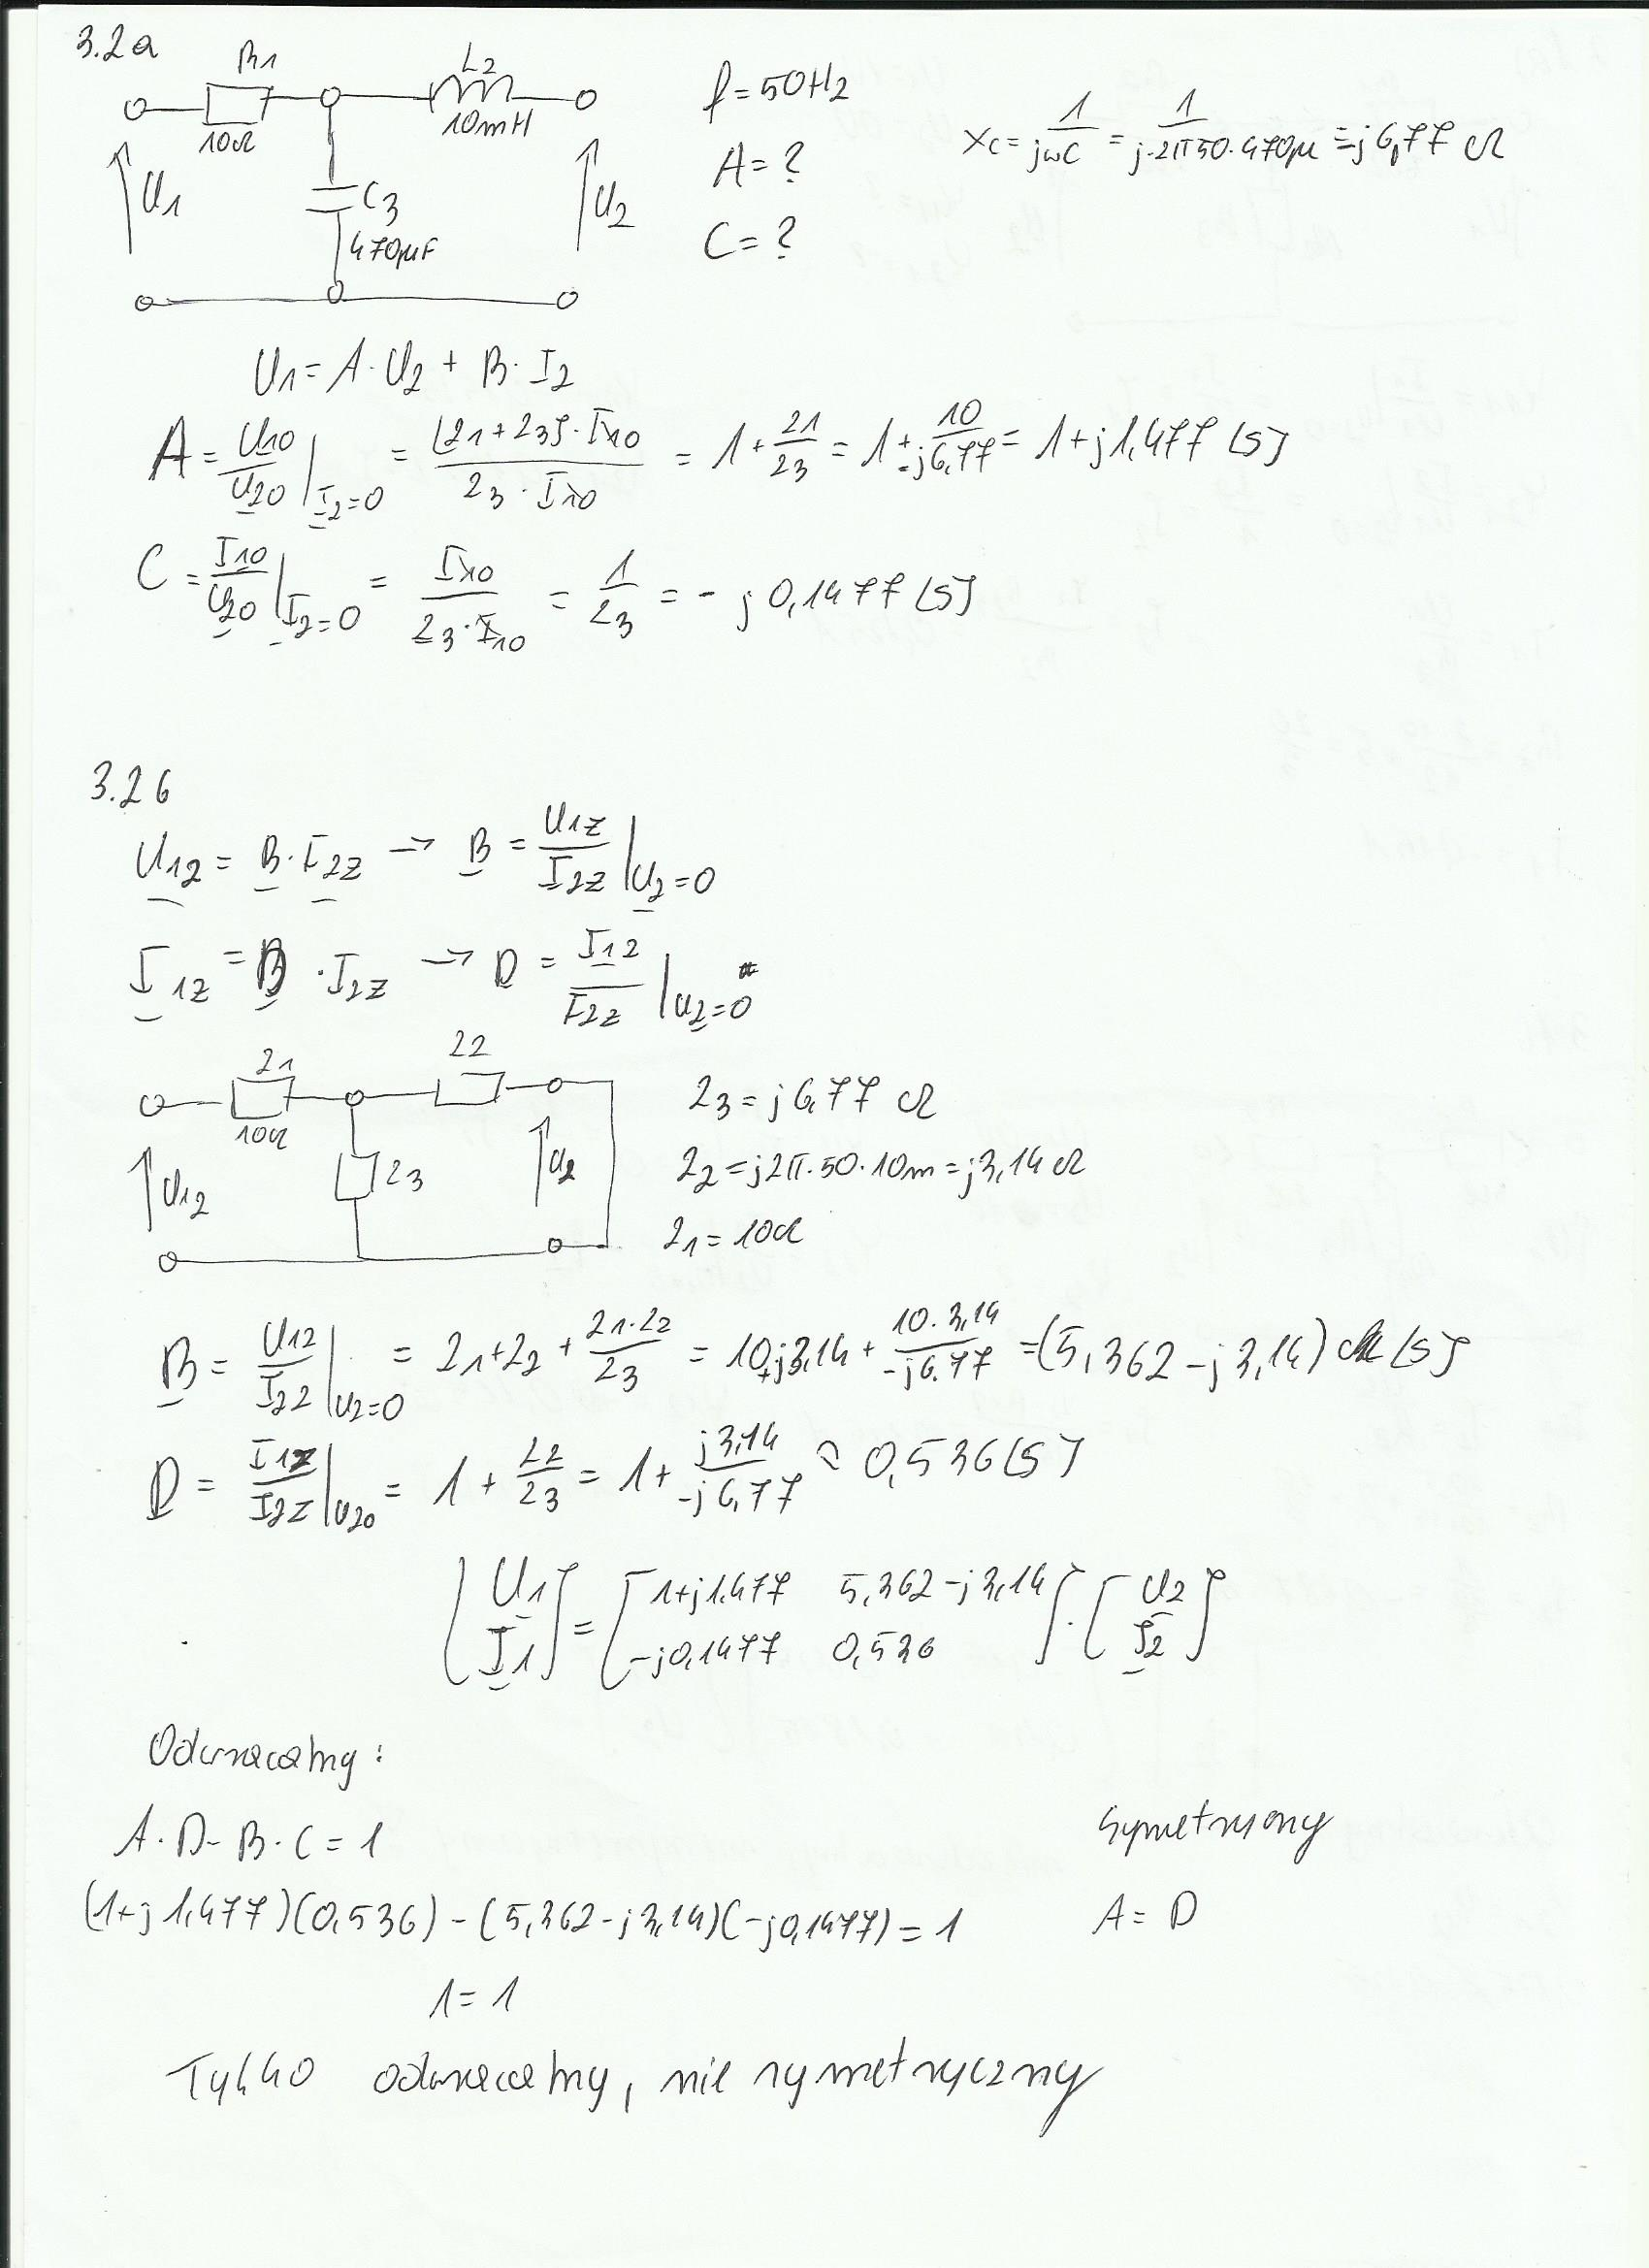 3.2a
R1
L2
f=50Hz
10Ω
10mH
A=?
C=?
Xc = j 1/jωC = 1/j·2π50·470μ = -j6,77 Ω
U1
C3
470μF
U2
U1 = A·U2 + B·I2
A = U10/U20 | I2=0 = [Z1+Z3]·I10 / Z3·I10 = 1 + Z1/Z3 = 1 + 10/-j6,77 = 1+j1,477 [S]
C = I10/U20 | I2=0 = I10 / Z3·I10 = 1/Z3 = -j0,1477 [S]
3.2b
U1Z = B·I2Z → B = U1Z/I2Z | U2=0
I1Z = D·I2Z → D = I1Z/I2Z | U2=0
Z1
Z2
10Ω
Z3 = j6,77 Ω
U1Z
Z3
U2
Z2 = j2π·50·10m = j3,14 Ω
Z1 = 10Ω
B = U1Z/I2Z | U2=0 = Z1+Z2 + Z1·Z2/Z3 = 10+j3,14 + 10·3,14/-j6,77 = (5,362 - j3,14) [S]
D = I1Z/I2Z | U20 = 1 + Z2/Z3 = 1 + j3,14/-j6,77 ≈ 0,536 [S]
[U1 I1] = [1+j1,477 5,362-j3,14
-j0,1477 0,536] · [U2 I2]
Odwracalny:
A·D - B·C = 1
Symetryczny
(1+j1,477)(0,536) - (5,362-j3,14)(-j0,1477) = 1
A = D
1 = 1
Tylko odwracalny, nie symetryczny